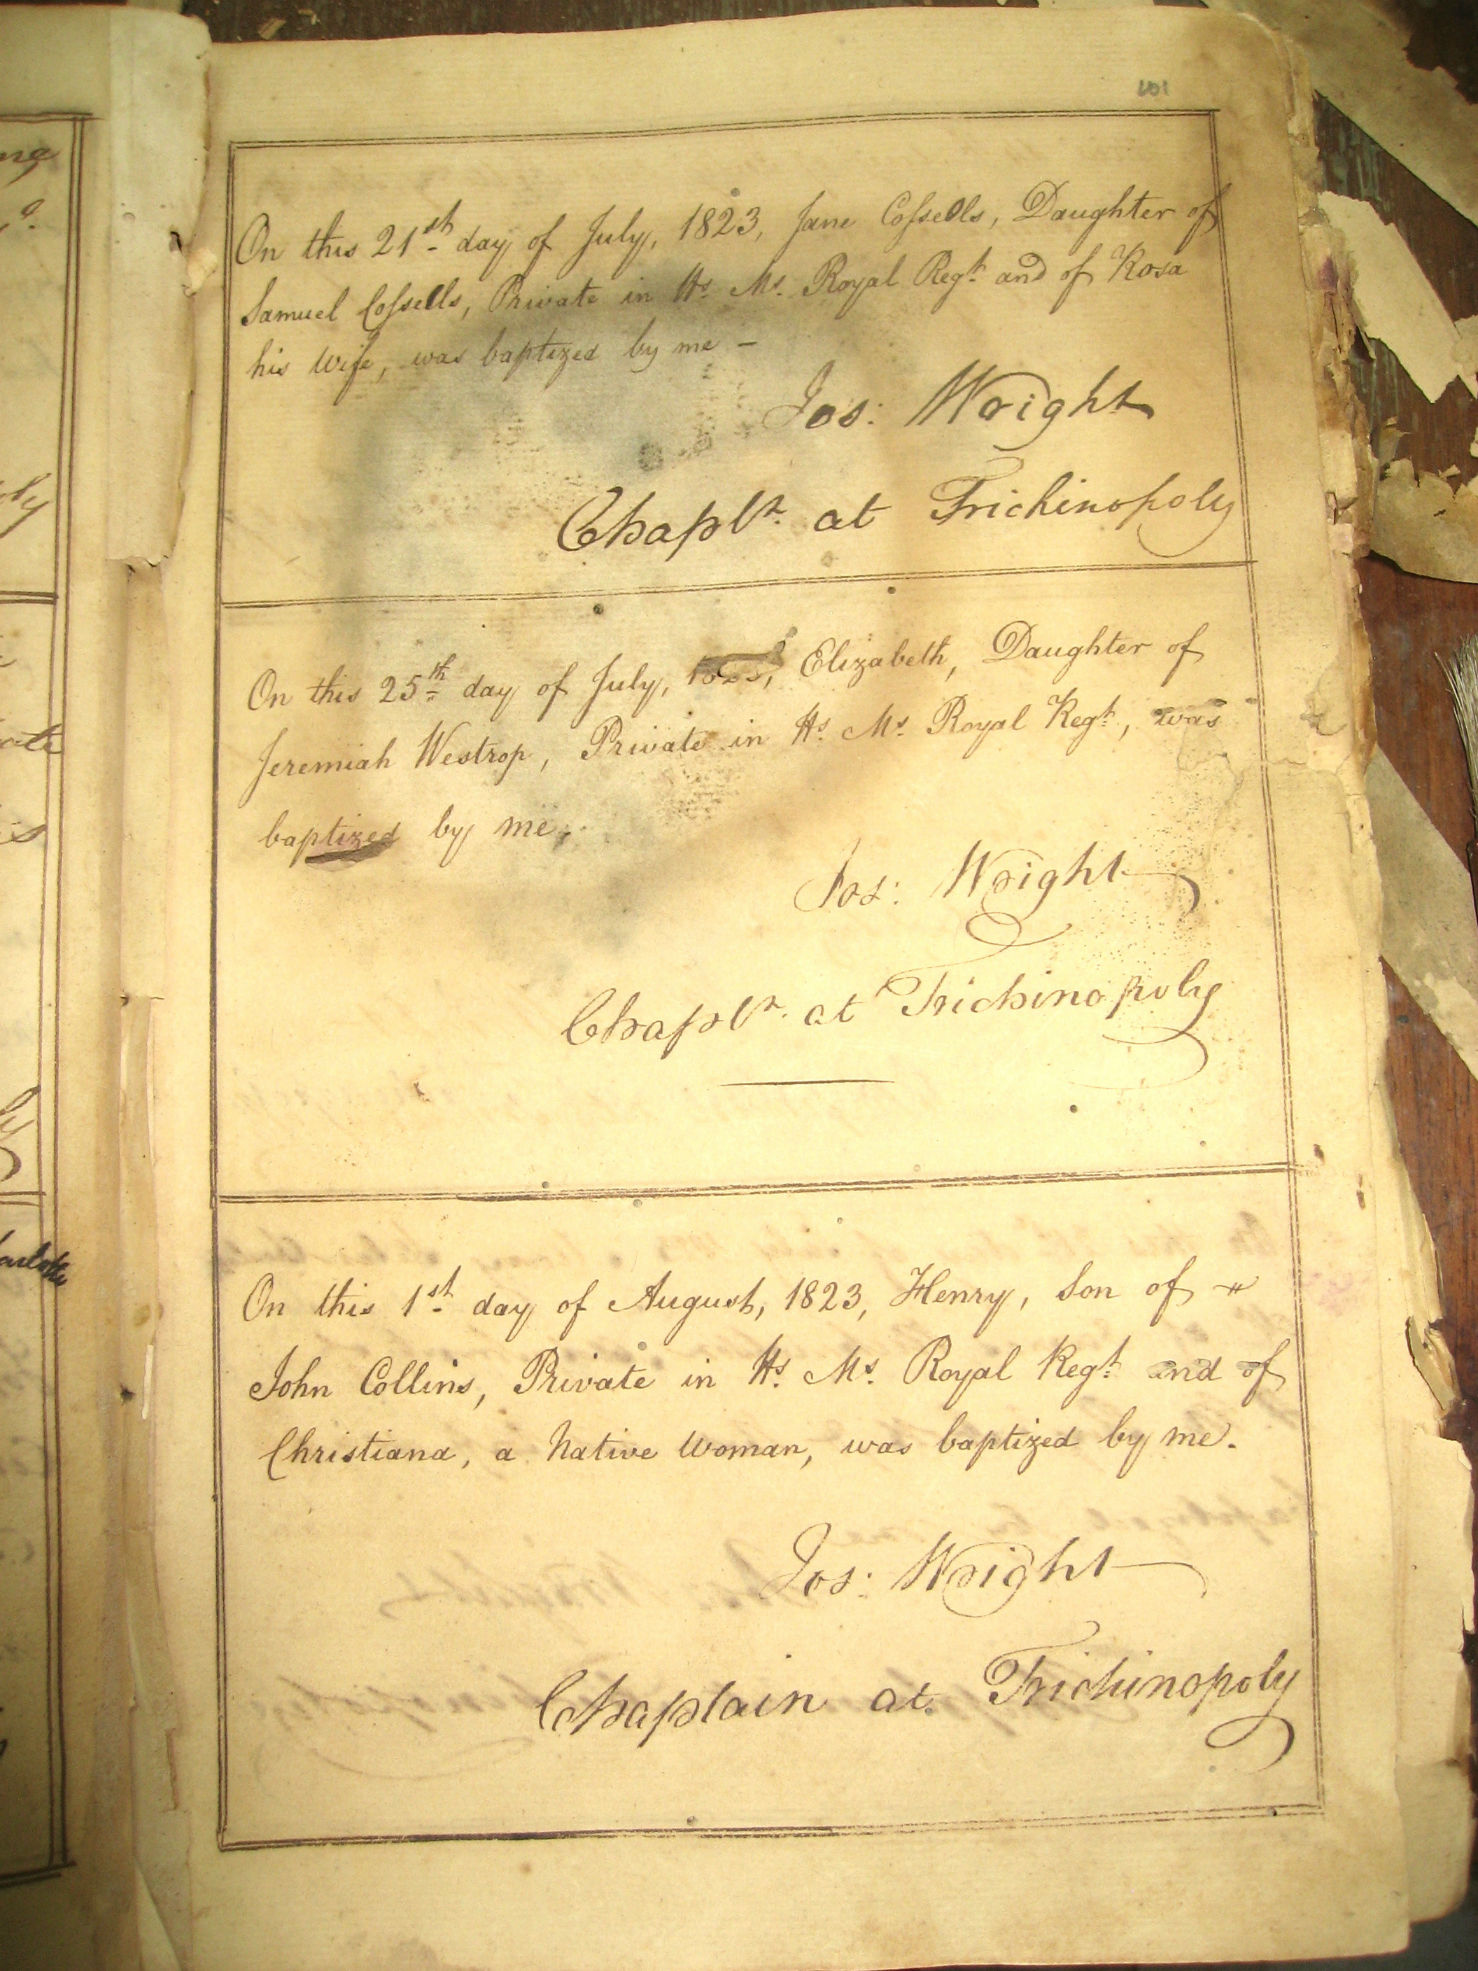 101
On this 21st day of July, 1823, Jane Cofsells, Daughter of
Samuel Cofsells, Private in Hs. Ms. Royal Regt. and of Rosa
his Wife, was baptized by me –
Jos: Wright
Chapln. at Trichinopoly
On this 25th day of July, 1823, Elizabeth, Daughter of
Jeremiah Westrop, Private in Hs. Ms. Royal Regt, was
baptized by me,
Jos: Wright
Chapln. at Trichinopoly
On this 1st day of August, 1823, Henry, Son of
John Collins, Private in Hs. Ms. Royal Regt. and of
Christiana, a Native Woman, was baptized by me.
Jos: Wright
Chaplain at Trichinopoly